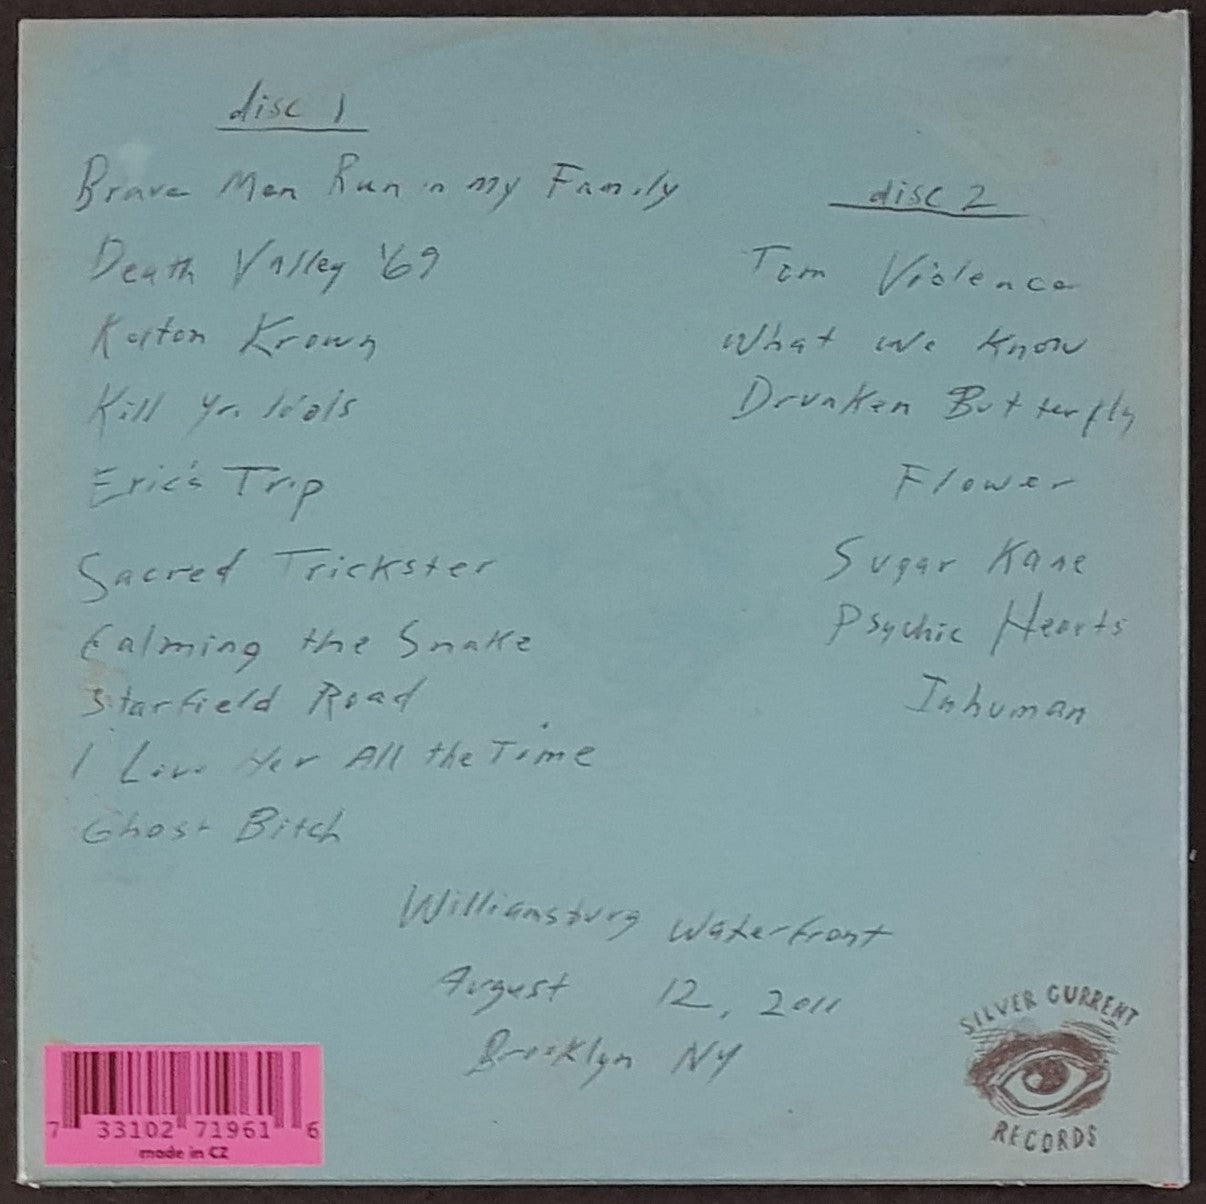 disc 1
Brave Men Run in my Family
Death Valley '69
Kotton Krown
Kill yr. Idols
Eric's Trip
Sacred Trickster
Calming the Snake
Starfield Road
I Love Her All the Time
Ghost Bitch
disc 2
Tom Violence
What We Know
Drunken Butterfly
Flower
Sugar Kane
Psychic Hearts
Inhuman
Williamsburg Waterfront
August 12, 2011
Brooklyn NY
7 33102 71961 6
made in CZ
SILVER CURRENT
RECORDS